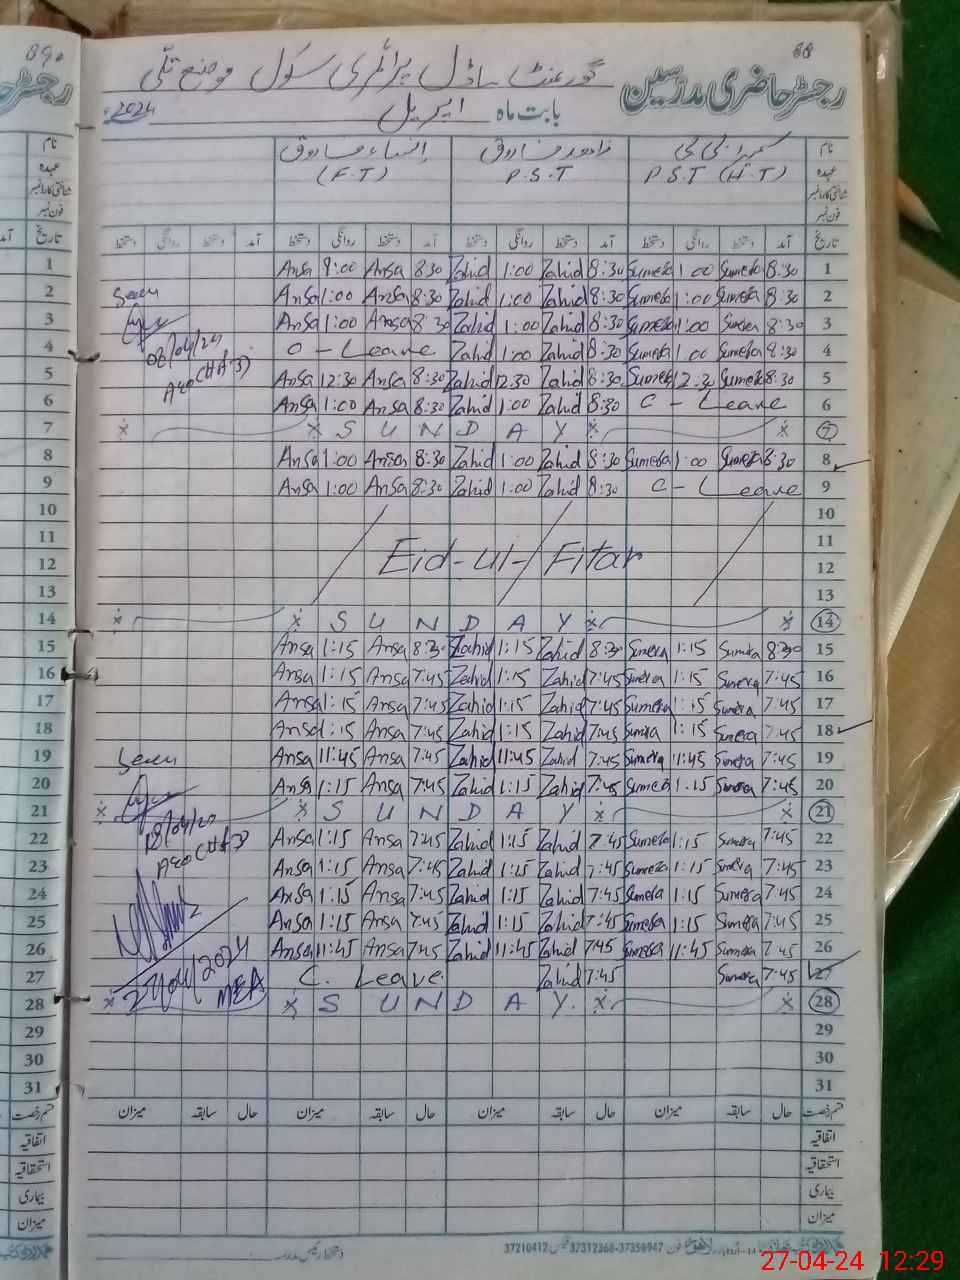 89
88
رجسٹر حاضری مدرسین گورنمنٹ ماڈل پرائمری سکول موضع تلی
بابت ماہ اپریل 2024
نام زاہد فاروق انساء فاروق
عہدہ P.S.T (H.T) P.S.T (F.T)
شناختی کارڈ نمبر
فون نمبر
تاریخ آمد دستخط روانگی دستخط آمد دستخط روانگی دستخط آمد دستخط روانگی دستخط آمد دستخط روانگی دستخط
1 Ansa 9:00 Ansa 8:30 Zahid 1:00 Zahid 8:30 Sumera 1:00 Sumera 8:30 1
2 Seen Ansa 1:00 Ansa 8:30 Zahid 1:00 Zahid 8:30 Sumera 1:00 Sumera 8:30 2
3 Ansa 1:00 Ansa 8:30 Zahid 1:00 Zahid 8:30 Sumera 1:00 Sumera 8:30 3
4 08/04/24 C - Leave Zahid 1:00 Zahid 8:30 Sumera 1:00 Sumera 8:30 4
5 AEO Ansa 12:30 Ansa 8:30 Zahid 12:30 Zahid 8:30 Sumera 12:30 Sumera 8:30 5
6 Ansa 1:00 Ansa 8:30 Zahid 1:00 Zahid 8:30 C - Leave 6
7 SUNDAY 7
8 Ansa 1:00 Ansa 8:30 Zahid 1:00 Zahid 8:30 Sumera 1:00 Sumera 8:30 8
9 Ansa 1:00 Ansa 8:30 Zahid 1:00 Zahid 8:30 C - Leave 9
10 10
11 11
12 Eid-ul-Fitar 12
13 13
14 SUNDAY 14
15 Ansa 1:15 Ansa 8:30 Zahid 1:15 Zahid 8:30 Sumera 1:15 Sumera 8:30 15
16 Ansa 1:15 Ansa 7:45 Zahid 1:15 Zahid 7:45 Sumera 1:15 Sumera 7:45 16
17 Ansa 1:15 Ansa 7:45 Zahid 1:15 Zahid 7:45 Sumera 1:15 Sumera 7:45 17
18 Ansa 1:15 Ansa 7:45 Zahid 1:15 Zahid 7:45 Sumera 1:15 Sumera 7:45 18
19 Seen Ansa 11:45 Ansa 7:45 Zahid 11:45 Zahid 7:45 Sumera 11:45 Sumera 7:45 19
20 Ansa 1:15 Ansa 7:45 Zahid 1:15 Zahid 7:45 Sumera 1:15 Sumera 7:45 20
21 SUNDAY 21
22 Ansa 1:15 Ansa 7:45 Zahid 1:15 Zahid 7:45 Sumera 1:15 Sumera 7:45 22
23 AEO Ansa 1:15 Ansa 7:45 Zahid 1:15 Zahid 7:45 Sumera 1:15 Sumera 7:45 23
24 Ansa 1:15 Ansa 7:45 Zahid 1:15 Zahid 7:45 Sumera 1:15 Sumera 7:45 24
25 Ansa 1:15 Ansa 7:45 Zahid 1:15 Zahid 7:45 Sumera 1:15 Sumera 7:45 25
26 Ansa 11:45 Ansa 7:45 Zahid 11:45 Zahid 7:45 Sumera 11:45 Sumera 7:45 26
27 27/04/2024 C. Leave Zahid 7:45 Sumera 7:45 27
28 MEA SUNDAY 28
29 29
30 30
31 31
قسم رخصت حال سابقہ میزان حال سابقہ میزان حال سابقہ میزان حال سابقہ میزان
اتفاقیہ
استحقاقیہ
بیماری
میزان
اردو بازار لاہور فون 37358947-37312368 فیکس 37210412
27-04-24 12:29